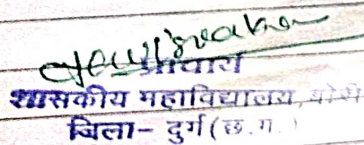 प्राचार्य
शासकीय महाविद्यालय, बोरी
जिला- दुर्ग (छ.ग.)